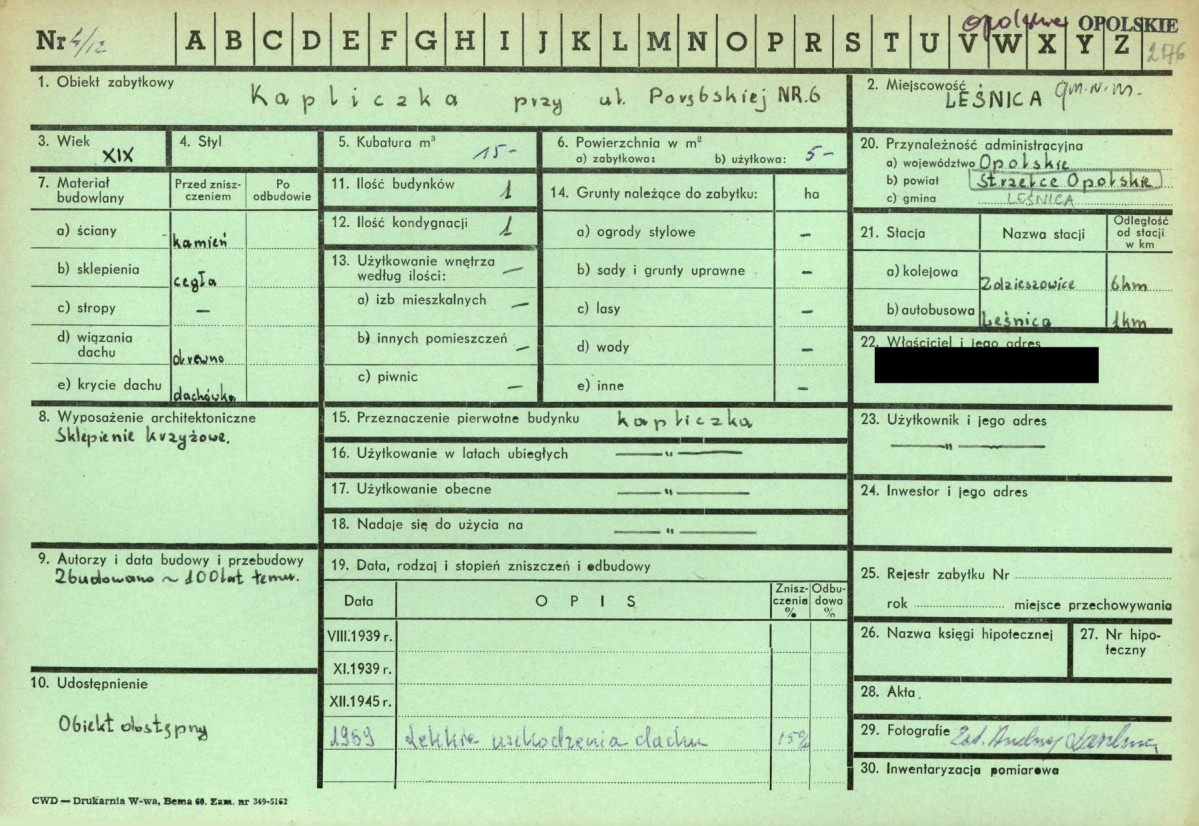 Nr 4/12 A B C D E F G H I J K L M N O P R S T U V W X Y Z OPOLSKIE
276
1. Obiekt zabytkowy
Kapliczka przy ul. Porębskiej NR.6
2. Miejscowość
LEŚNICA gm.n.m.
3. Wiek
XIX
4. Styl
5. Kubatura m³
15-
6. Powierzchnia w m²
a) zabytkowa: b) użytkowa: 5-
20. Przynależność administracyjna
a) województwo Opolskie
b) powiat Strzelce Opolskie
c) gmina LEŚNICA
7. Materiał budowlany
Przed zniszczeniem
Po odbudowie
a) ściany kamień
b) sklepienia cegła
c) stropy —
d) wiązania dachu drewno
e) krycie dachu dachówka
11. Ilość budynków 1
12. Ilość kondygnacji 1
13. Użytkowanie wnętrza według ilości: —
a) izb mieszkalnych —
b) innych pomieszczeń —
c) piwnic —
14. Grunty należące do zabytku: ha
a) ogrody stylowe —
b) sady i grunty uprawne —
c) lasy —
d) wody —
e) inne —
21. Stacja Nazwa stacji Odległość od stacji w km
a) kolejowa Zdzieszowice 6km
b) autobusowa Leśnica 1km
22. Właściciel i jego adres
8. Wyposażenie architektoniczne
Sklepienie krzyżowe.
15. Przeznaczenie pierwotne budynku kapliczka
16. Użytkowanie w latach ubiegłych —"—
17. Użytkowanie obecne —"—
18. Nadaje się do użycia na —"—
23. Użytkownik i jego adres
—"—
24. Inwestor i jego adres
9. Autorzy i data budowy i przebudowy
Zbudowano ~ 100 lat temu.
19. Data, rodzaj i stopień zniszczeń i odbudowy
Data OPIS Zniszczenia % Odbudowa %
VIII.1939 r.
XI.1939 r.
XII.1945 r.
1959 Lekkie uszkodzenia dachu 15%
25. Rejestr zabytku Nr
rok miejsce przechowywania
26. Nazwa księgi hipotecznej
27. Nr hipoteczny
10. Udostępnienie
Obiekt dostępny
28. Akta.
29. Fotografie
30. Inwentaryzacja pomiarowa
CWD — Drukarnia W-wa, Bema 60. Zam. nr 349-5162